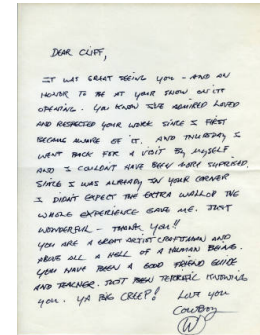 DEAR CLIFF,
IT WAS GREAT SEEING YOU - AND AN
HONOR TO BE AT YOUR SHOW ON ITS
OPENING. YOU KNOW I'VE ADMIRED LOVED
AND RESPECTED YOUR WORK SINCE I FIRST
BECAME AWARE OF IT. AND THURSDAY I
WENT BACK FOR A VISIT BY MYSELF
AND I COULDN'T HAVE BEEN MORE SUPRISED.
SINCE I WAS ALREADY IN YOUR CORNER
I DIDN'T EXPECT THE EXTRA WALLOP THE
WHOLE EXPERIENCE GAVE ME. JUST
WONDERFUL - THANK YOU!!
YOU ARE A GREAT ARTIST CRAFTSMAN AND
ABOVE ALL A HELL OF A HUMAN BEING.
YOU HAVE BEEN A GOOD FRIEND GUIDE
AND TEACHER. JUST BEEN TERRIFIC KNOWING
YOU. YA BIG CREEP!
LOVE YOU
COWBOY